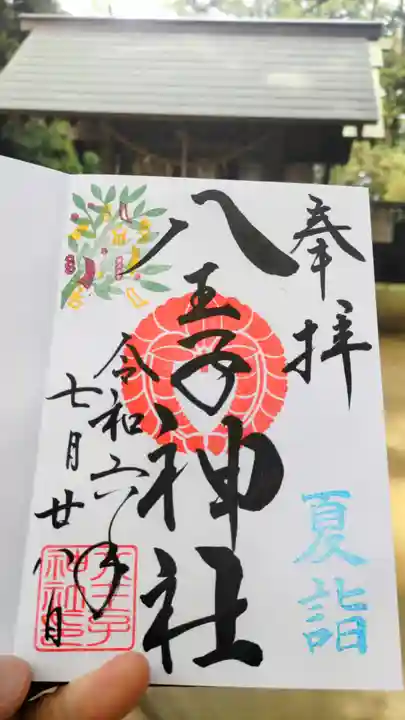 奉拝
夏詣
八王子神社
令和六年
七月廿八日
八王子神社印